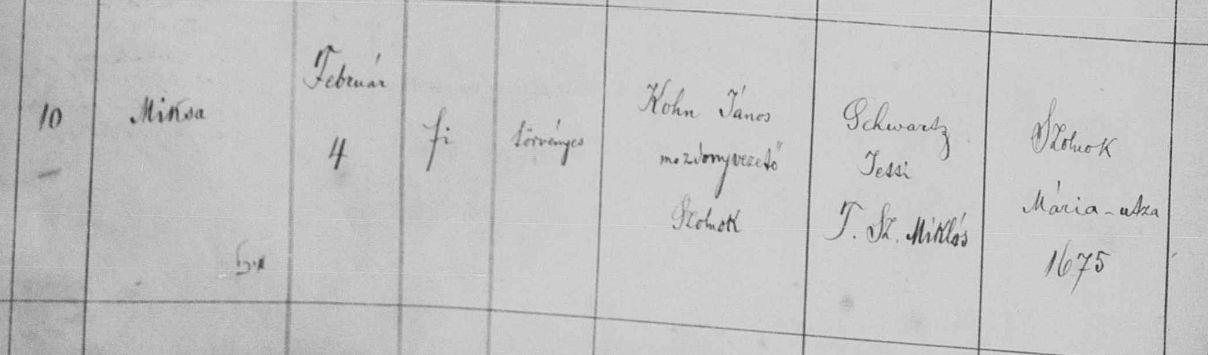 10
Miksa
Február
4
fi
törvényes
Kohn János
mozdonyvezető
Szolnok
Schwartz
Jessi
T. Sz. Miklós
Szolnok
Mária-utza
1675